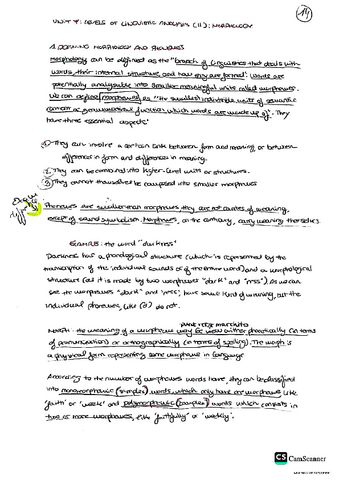 14
UNIT 4: LEVELS OF LINGUISTIC ANALYSIS (II): MORPHOLOGY
1. DEFINING MORPHOLOGY AND PHONEMES
Morphology can be defined as the "branch of linguistics that deals with
words, their internal structure, and how they are formed". Words are
potentially analysable into smaller meaningful units called morphemes.
We can define morphemes as "the smallest indivisible units of semantic
content or grammatical function which words are made up of". They
have three essential aspects:
1) They can involve a certain link between form and meaning or between
differences in form and differences in meaning.
2) They can be combined into higher-level words or structures.
3) They cannot themselves be composed into smaller morphemes
Phonemes are smaller than morphemes, they are not carriers of meaning,
except of sound symbolism. Morphemes, on the contrary, carry meaning themselves
EXAMPLE: the word "darkness"
Darkness has a phonological structure (which is represented by the
transcription of the individual sounds or of the entire word) and a morphological
structure (as it is made by two morphemes "dark" and "ness"). As we can
see the morphemes "dark" and "ness" have some kind of meaning, but the
individual phonemes, like (d) do not.
MORPH: the meaning of a morpheme may be used either phonetically (in terms
of pronunciation) or orthographically (in terms of spelling). The morph is
a physical form representing some morpheme in language
According to the number of morphemes words have, they can be classified
into monomorphemic (simplex) words, which only have one morpheme like
"faith" or "week" and polymorphemic (complex) words which consists in
two or more morphemes, like "faithfully" or "weekly".
CS CamScanner